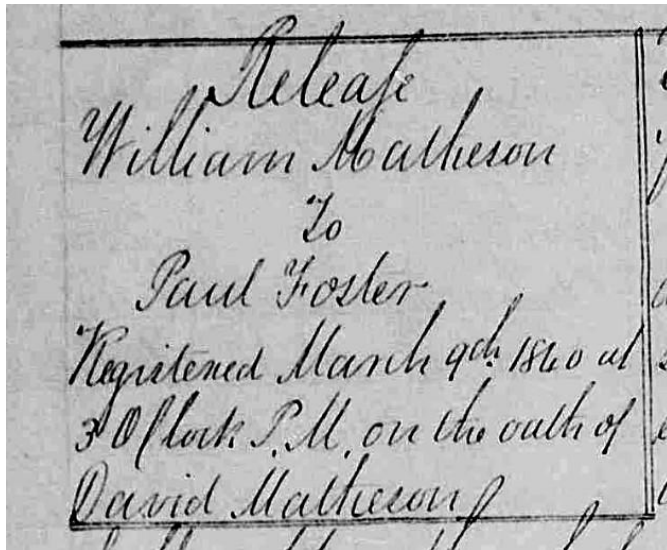 Release
William Matheson
To
Paul Foster
Registered March 9th 1840 at
3 OClock P.M. on the oath of
David Matheson